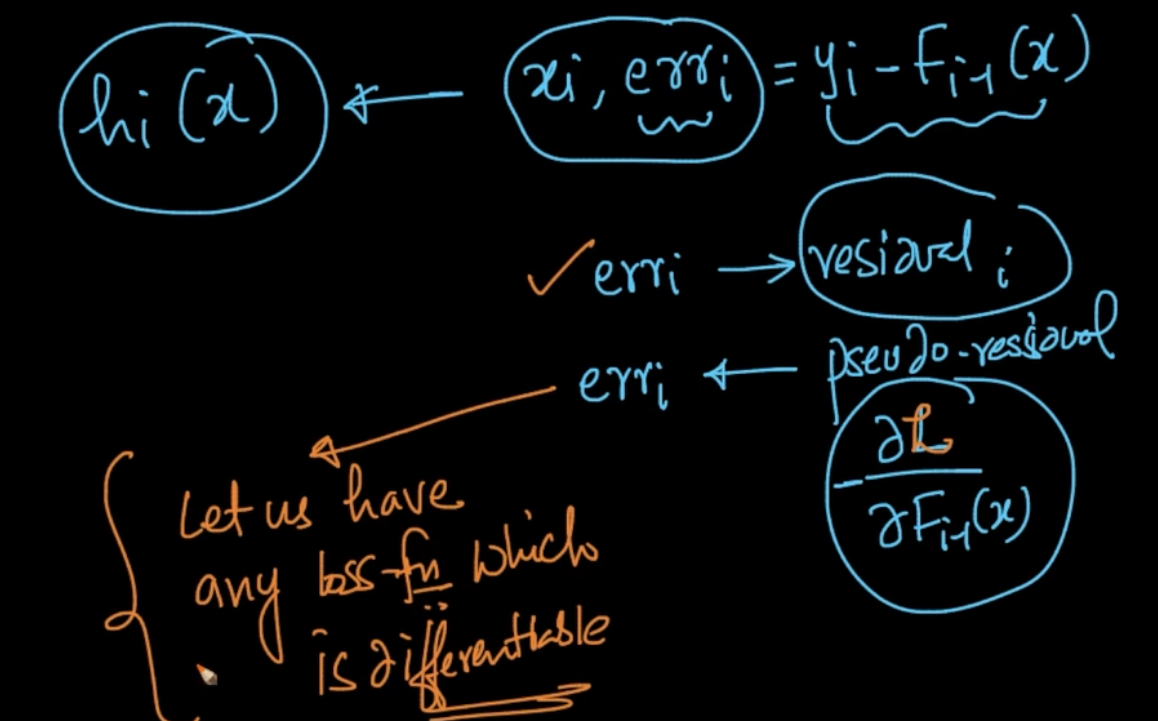 hi(x) ← xi, erri = yi - Fi-1(x)
erri → residual i
erri ← pseudo-residual
-∂L/∂Fi-1(x)
Let us have
any loss-fn which
is differentiable